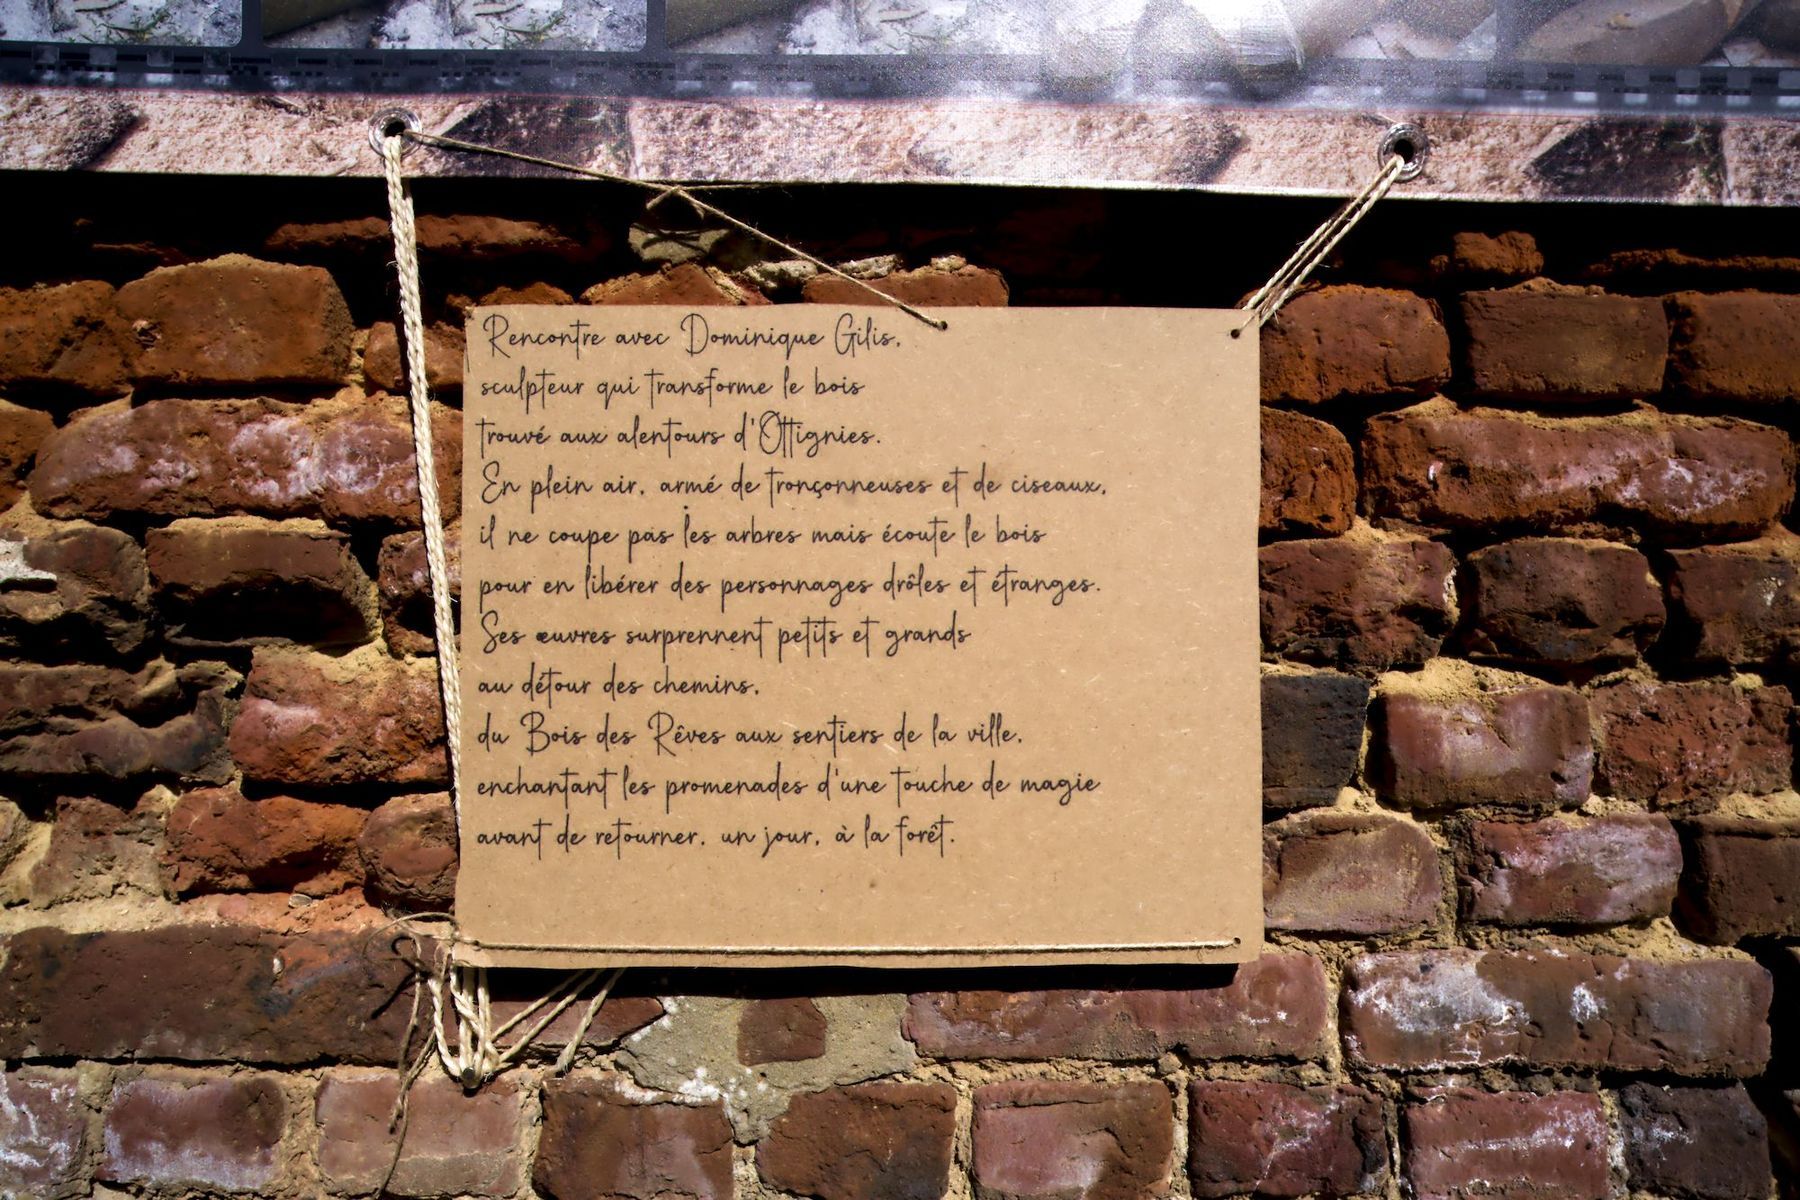 Rencontre avec Dominique Gilis,
sculpteur qui transforme le bois
trouvé aux alentours d'Ottignies.
En plein air, armé de tronçonneuses et de ciseaux,
il ne coupe pas les arbres mais écoute le bois
pour en libérer des personnages drôles et étranges.
Ses œuvres surprennent petits et grands
au détour des chemins,
du Bois des Rêves aux sentiers de la ville,
enchantant les promenades d'une touche de magie
avant de retourner, un jour, à la forêt.